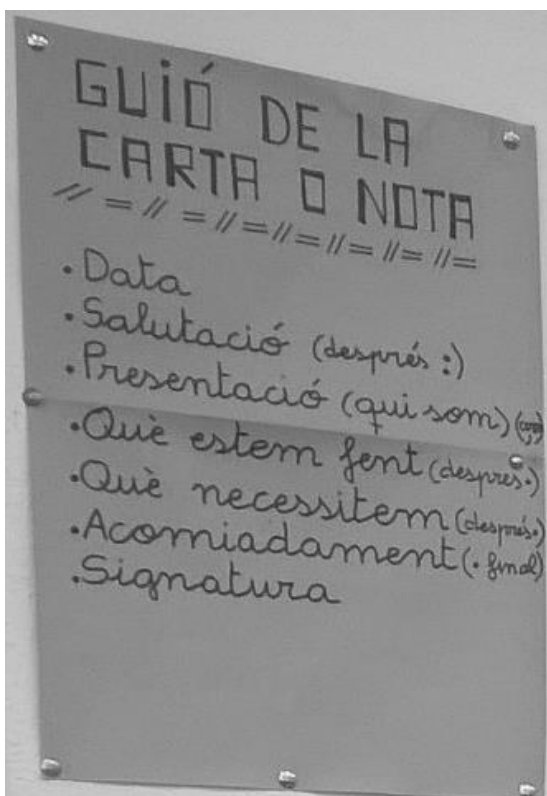 GUIÓ DE LA
CARTA O NOTA
· Data
· Salutació (després :)
· Presentació (qui som)
· Què estem fent (després .)
· Què necessitem (després .)
· Acomiadament (. final)
· Signatura